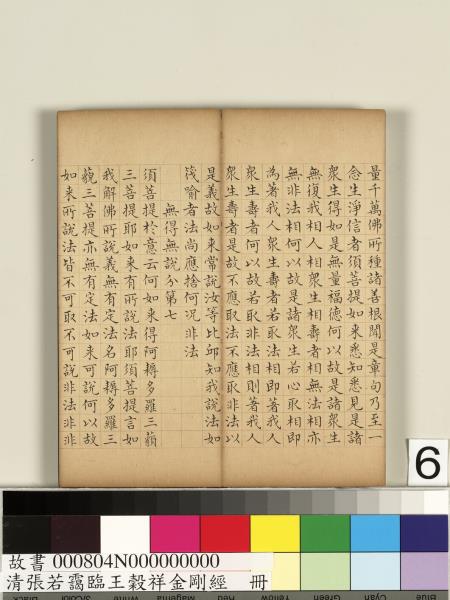 量千萬佛所種諸善根聞是章句乃至一
念生淨信者須菩提如來悉知悉見是諸
衆生得如是無量福德何以故是諸衆生
無復我相人相衆生相壽者相無法相亦
無非法相何以故是諸衆生若心取相即
為著我人衆生壽者若取法相即著我人
衆生壽者何以故若取非法相則著我人
衆生壽者是故不應取法不應取非法以
是義故如來常說汝等比邱知我說法如
筏喻者法尚應捨何況非法
無得無說分第七
須菩提於意云何如來得阿耨多羅三藐
三菩提耶如來有所說法耶須菩提言如
我解佛所說義無有定法名阿耨多羅三
藐三菩提亦無有定法如來可說何以故
如來所說法皆不可取不可說非法非非
6
故書 000804N000000000
清張若靄臨王穀祥金剛經 冊
Black 3/Color White Magenta Red Yellow Green Cyan Blue